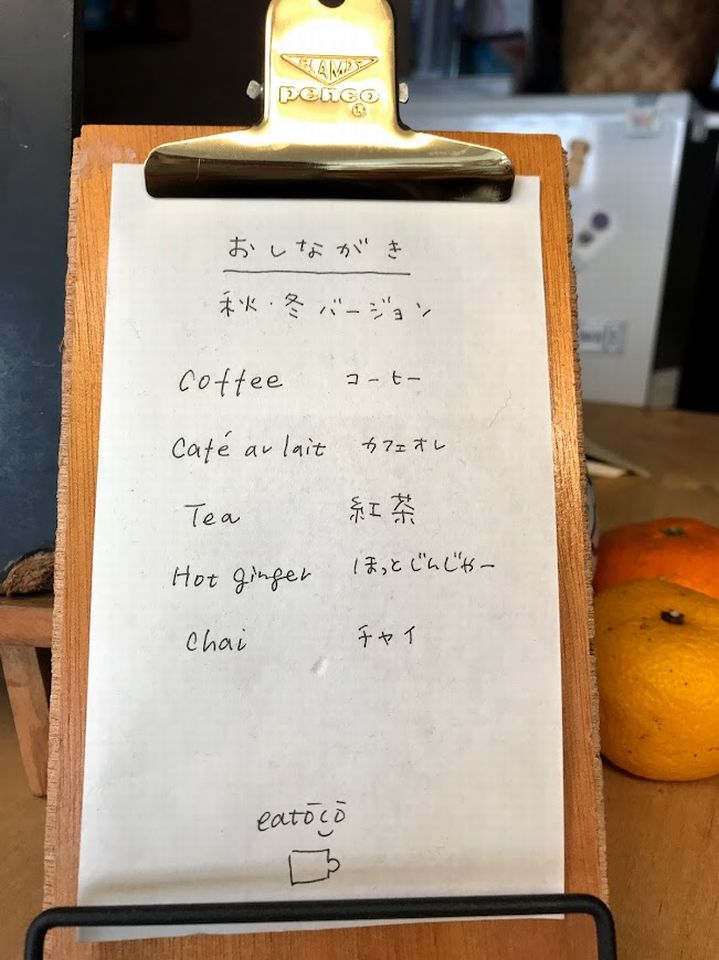 CLAMPS
penco
おしながき
秋・冬 バージョン
Coffee コーヒー
Café au lait カフェオレ
Tea 紅茶
Hot ginger ほっとじんじゃー
Chai チャイ
eatōcō